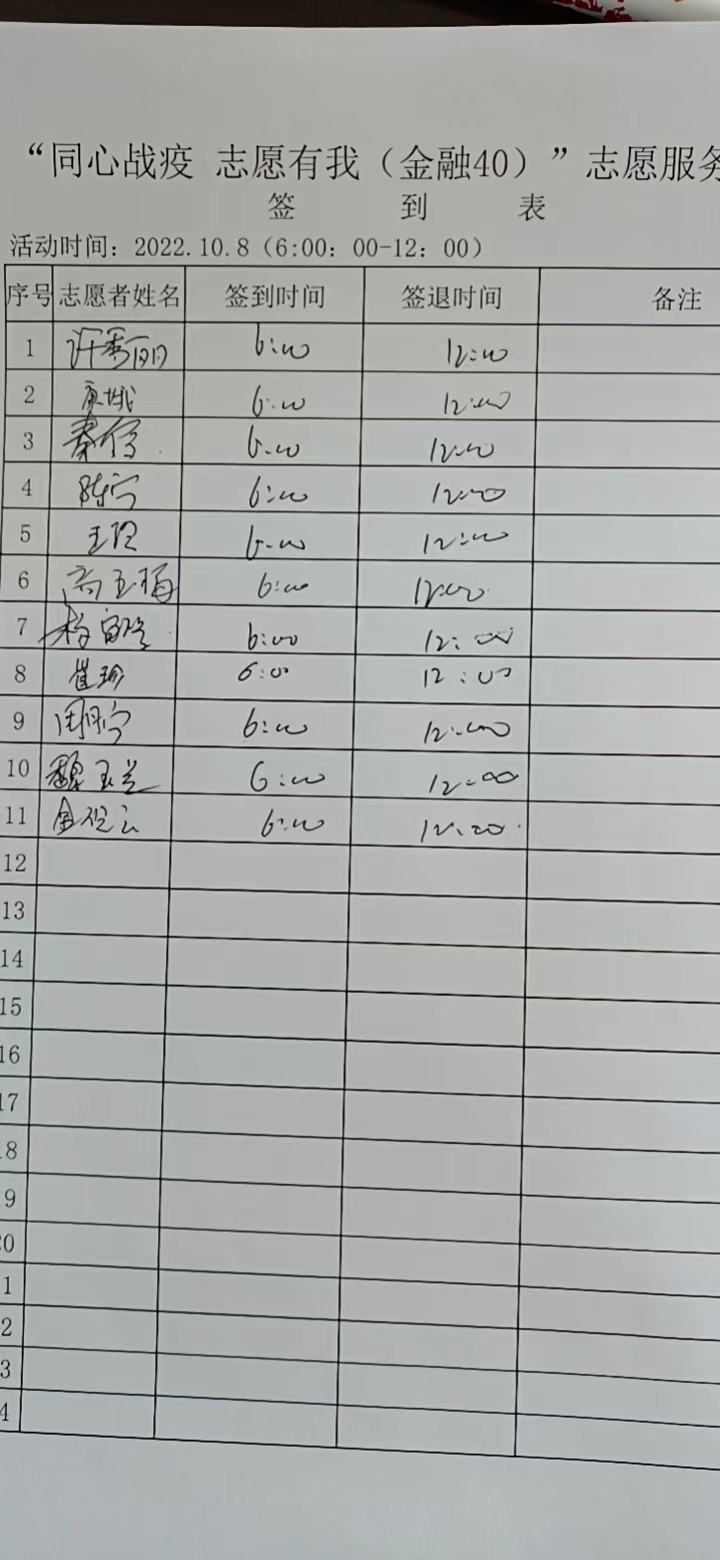 “同心战疫 志愿有我（金融40）”志愿服务
签 到 表
活动时间：2022.10.8（6:00：00-12：00）
序号 志愿者姓名 签到时间 签退时间 备注
1 许秀丽 6:00 12:00
2 康城 6:00 12:00
3 秦 6:00 12:00
4 陈宁 6:00 12:00
5 王 6:00 12:00
6 高玉梅 6:00 12:00
7 杨 6:00 12:00
8 崔珍 6:00 12:00
9 周 宁 6:00 12:00
10 魏玉兰 6:00 12:00
11 金 6:00 12:00
12
13
14
15
16
17
18
19
20
1
2
3
4